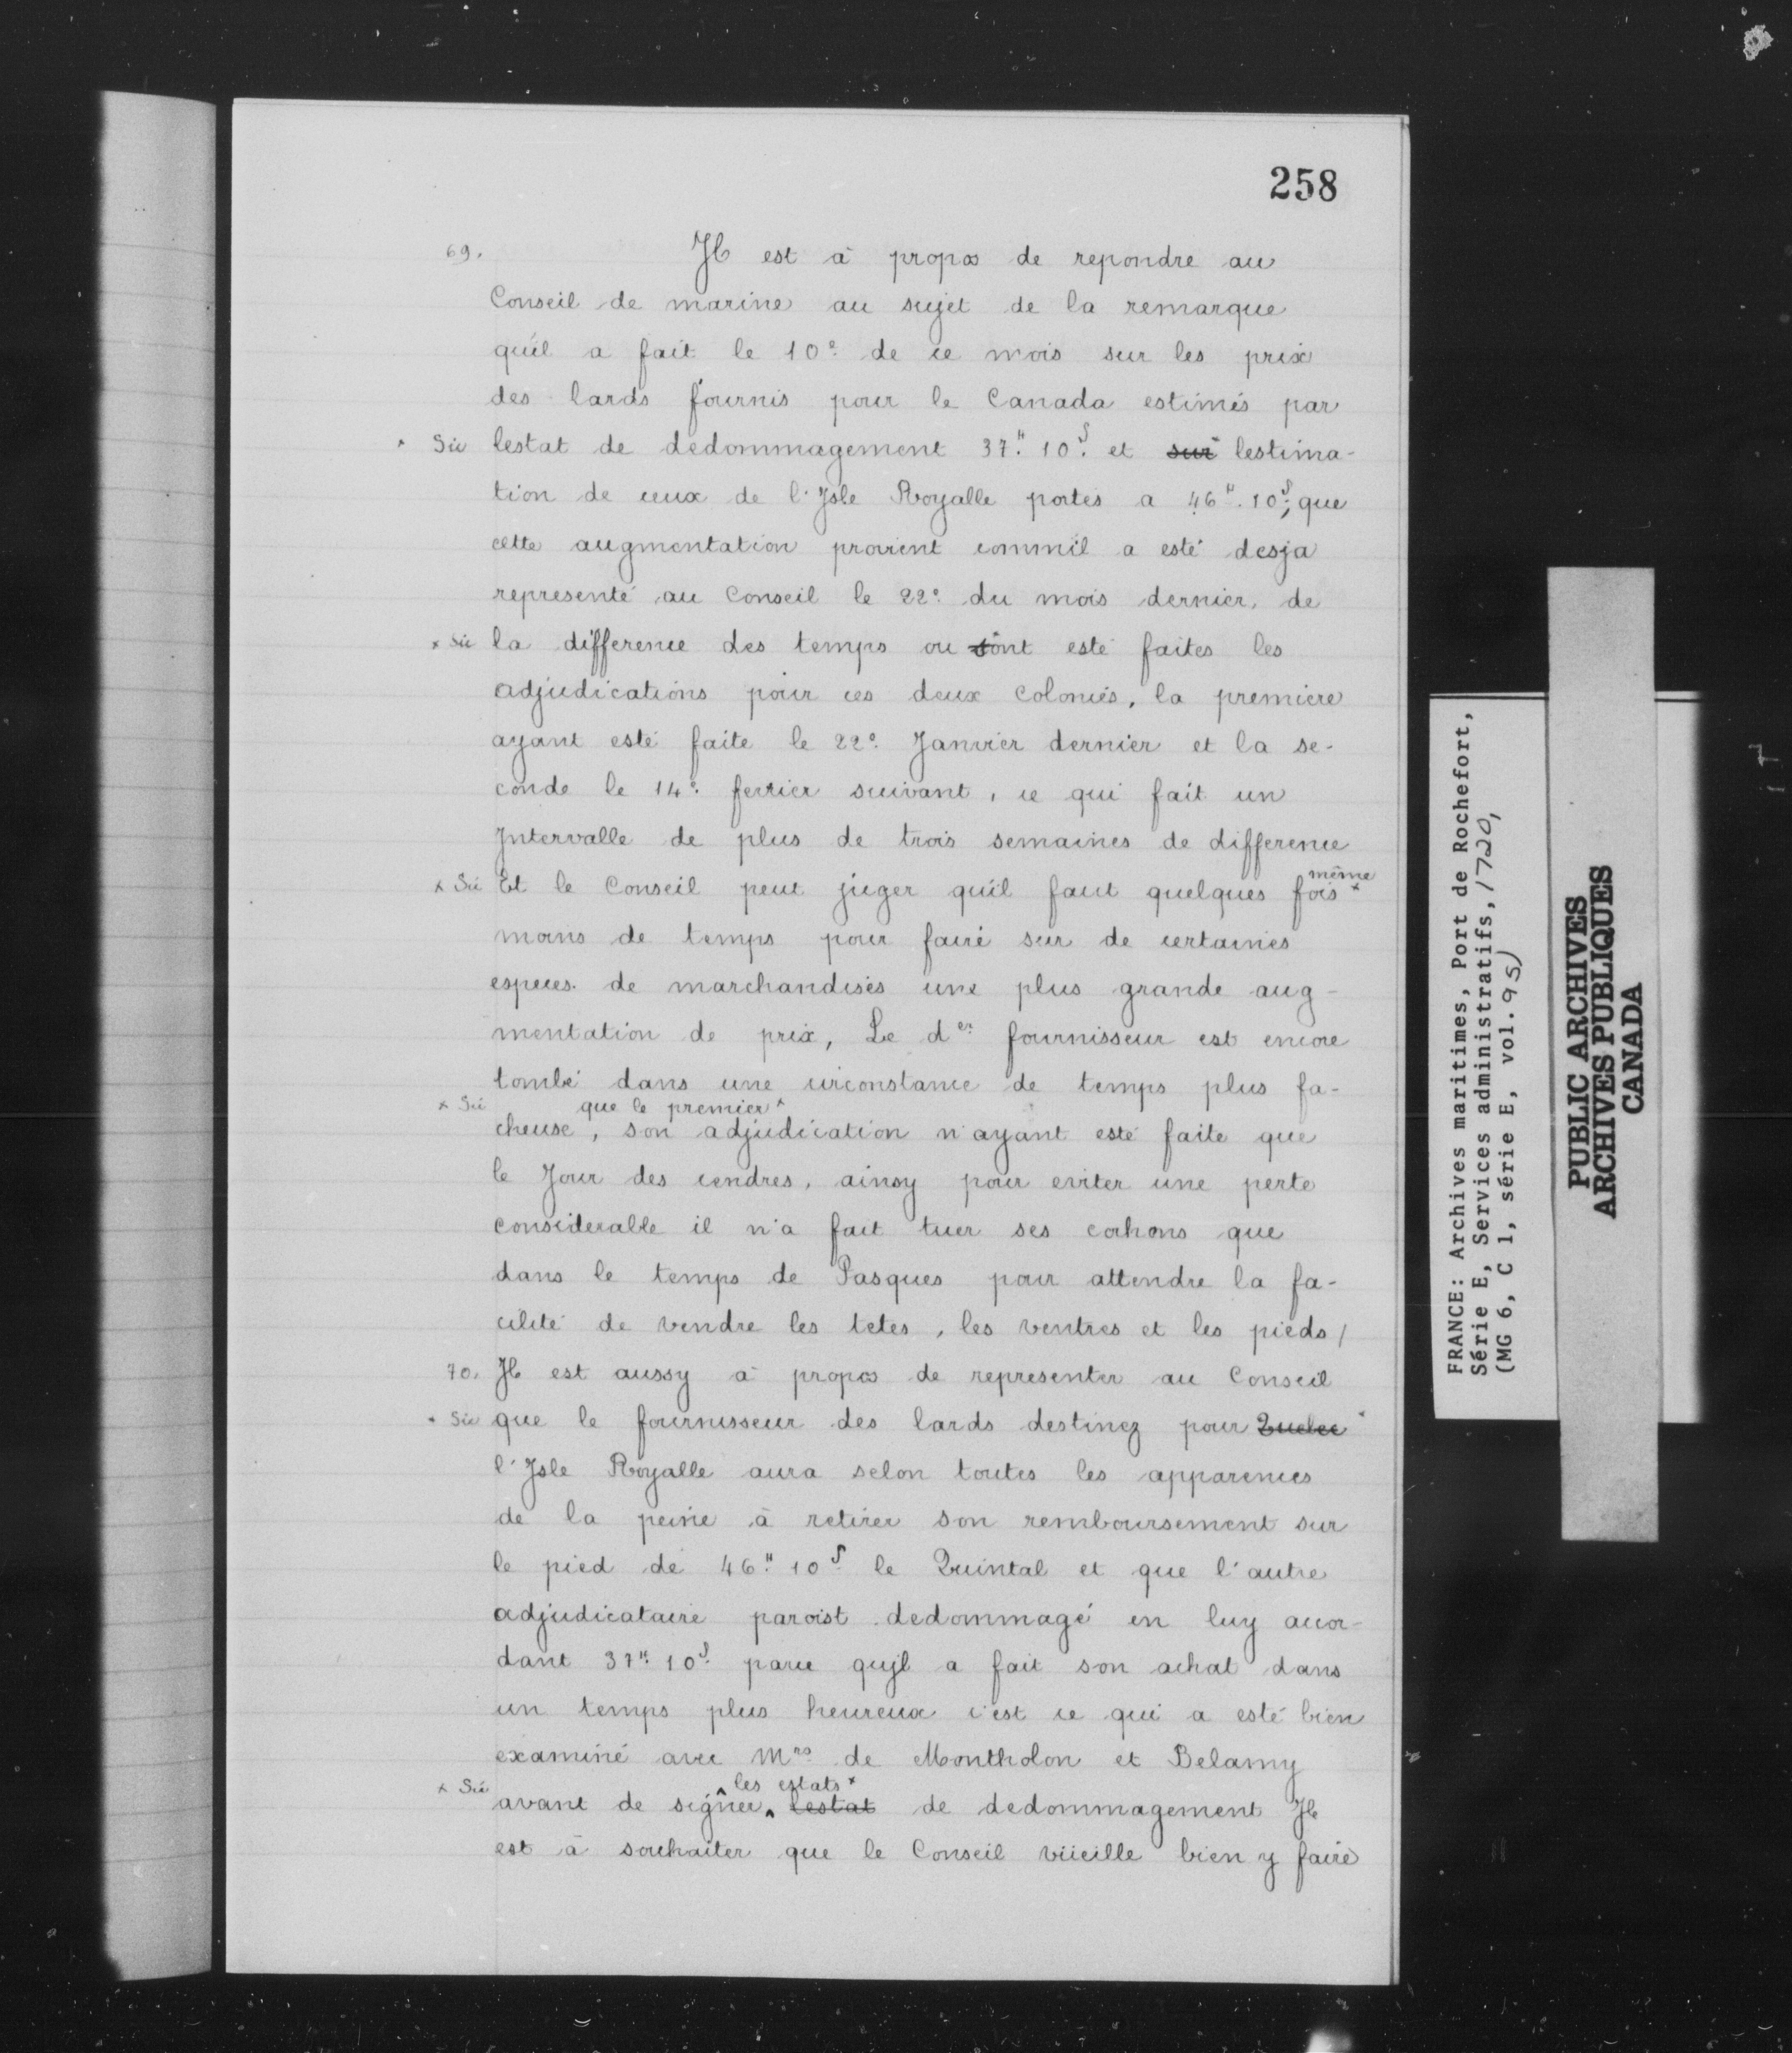 258
69. Jl est à propos de repondre au
Conseil de marine au sujet de la remarque
qu'il a fait le 10e de ce mois sur les prix
des lards fournis pour le Canada estimés par
* Sic lestat de dedommagement 37.# 10.s et sur* lestima-
tion de ceux de l'Jsle Royalle portés a 46# 10s; que
cette augmentation provient commil a esté desja
representé au Conseil le 22e du mois dernier, de
* Sic la difference des temps ou sont* esté faites les
adjudications pour ces deux Colonies, la premiere
ayant esté faite le 22e Janvier dernier et la se-
conde le 14e fevrier suivant, ce qui fait un
Jntervalle de plus de trois semaines de difference
* Sic Et le Conseil peut juger qu'il faut quelques fois même*
moins de temps pour faire sur de certaines
especes de marchandises une plus grande aug-
mentation de prix, Le der fournisseur est encore
tombé dans une circonstance de temps plus fa-
* Sic que le premier*
cheuse, son adjudication n'ayant esté faite que
le Jour des cendres, ainsy pour eviter une perte
considerable il n'a fait tuer ses cochons que
dans le temps de Pasques pour attendre la fa-
cilité de vendre les tetes, les ventres et les pieds /
70. Jl est aussy à propos de representer au Conseil
* Sic que le fournisseur des lards destinez pour Quebec*
l'Jsle Royalle aura selon toutes les apparences
de la peine à retirer son remboursement sur
le pied de 46# 10s le Quintal et que l'autre
adjudicataire paroist dedommagé en luy accor-
dant 37# 10s parce qujl a fait son achat dans
un temps plus heureux c'est ce qui a esté bien
examiné avec Mrs de Montholon et Belamy
* Sic les estats*
avant de signer lestat de dedommagement Jl
est à souhaiter que le Conseil vüeille bien y faire
FRANCE: Archives maritimes, Port de Rochefort,
Série E, Services administratifs, 1720,
(MG 6, C 1, série E, vol. 95)
PUBLIC ARCHIVES
ARCHIVES PUBLIQUES
CANADA